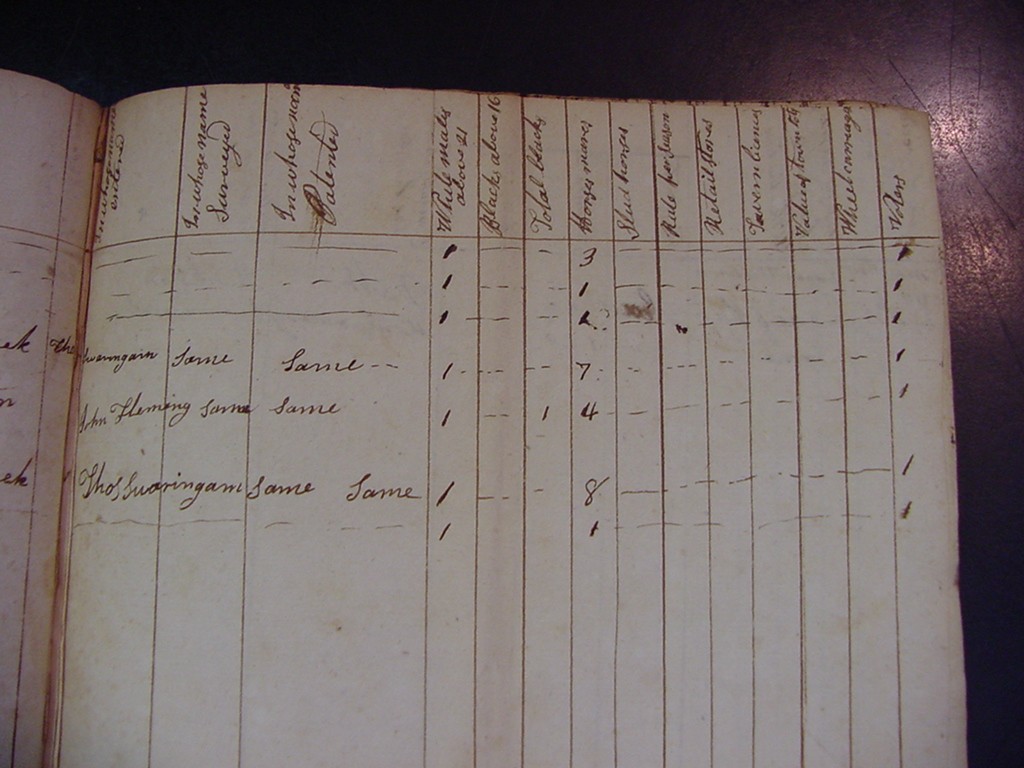 In whose name entered
In whose name Surveyed
In whose name Patented
White males above 21
Blacks above 16
Total blacks
Horses mares
Stud horses
Rate per season
Retail stores
Tavern licences
Value of town lots
Wheel carriages
Voters
1 - 3 1
1 1 1
1 1 1
ek Tho Swaringam Same Same 1 7 1
n John Fleming Same Same 1 1 4 1
ek Thos Swaringam Same Same 1 8 1
1 1 1